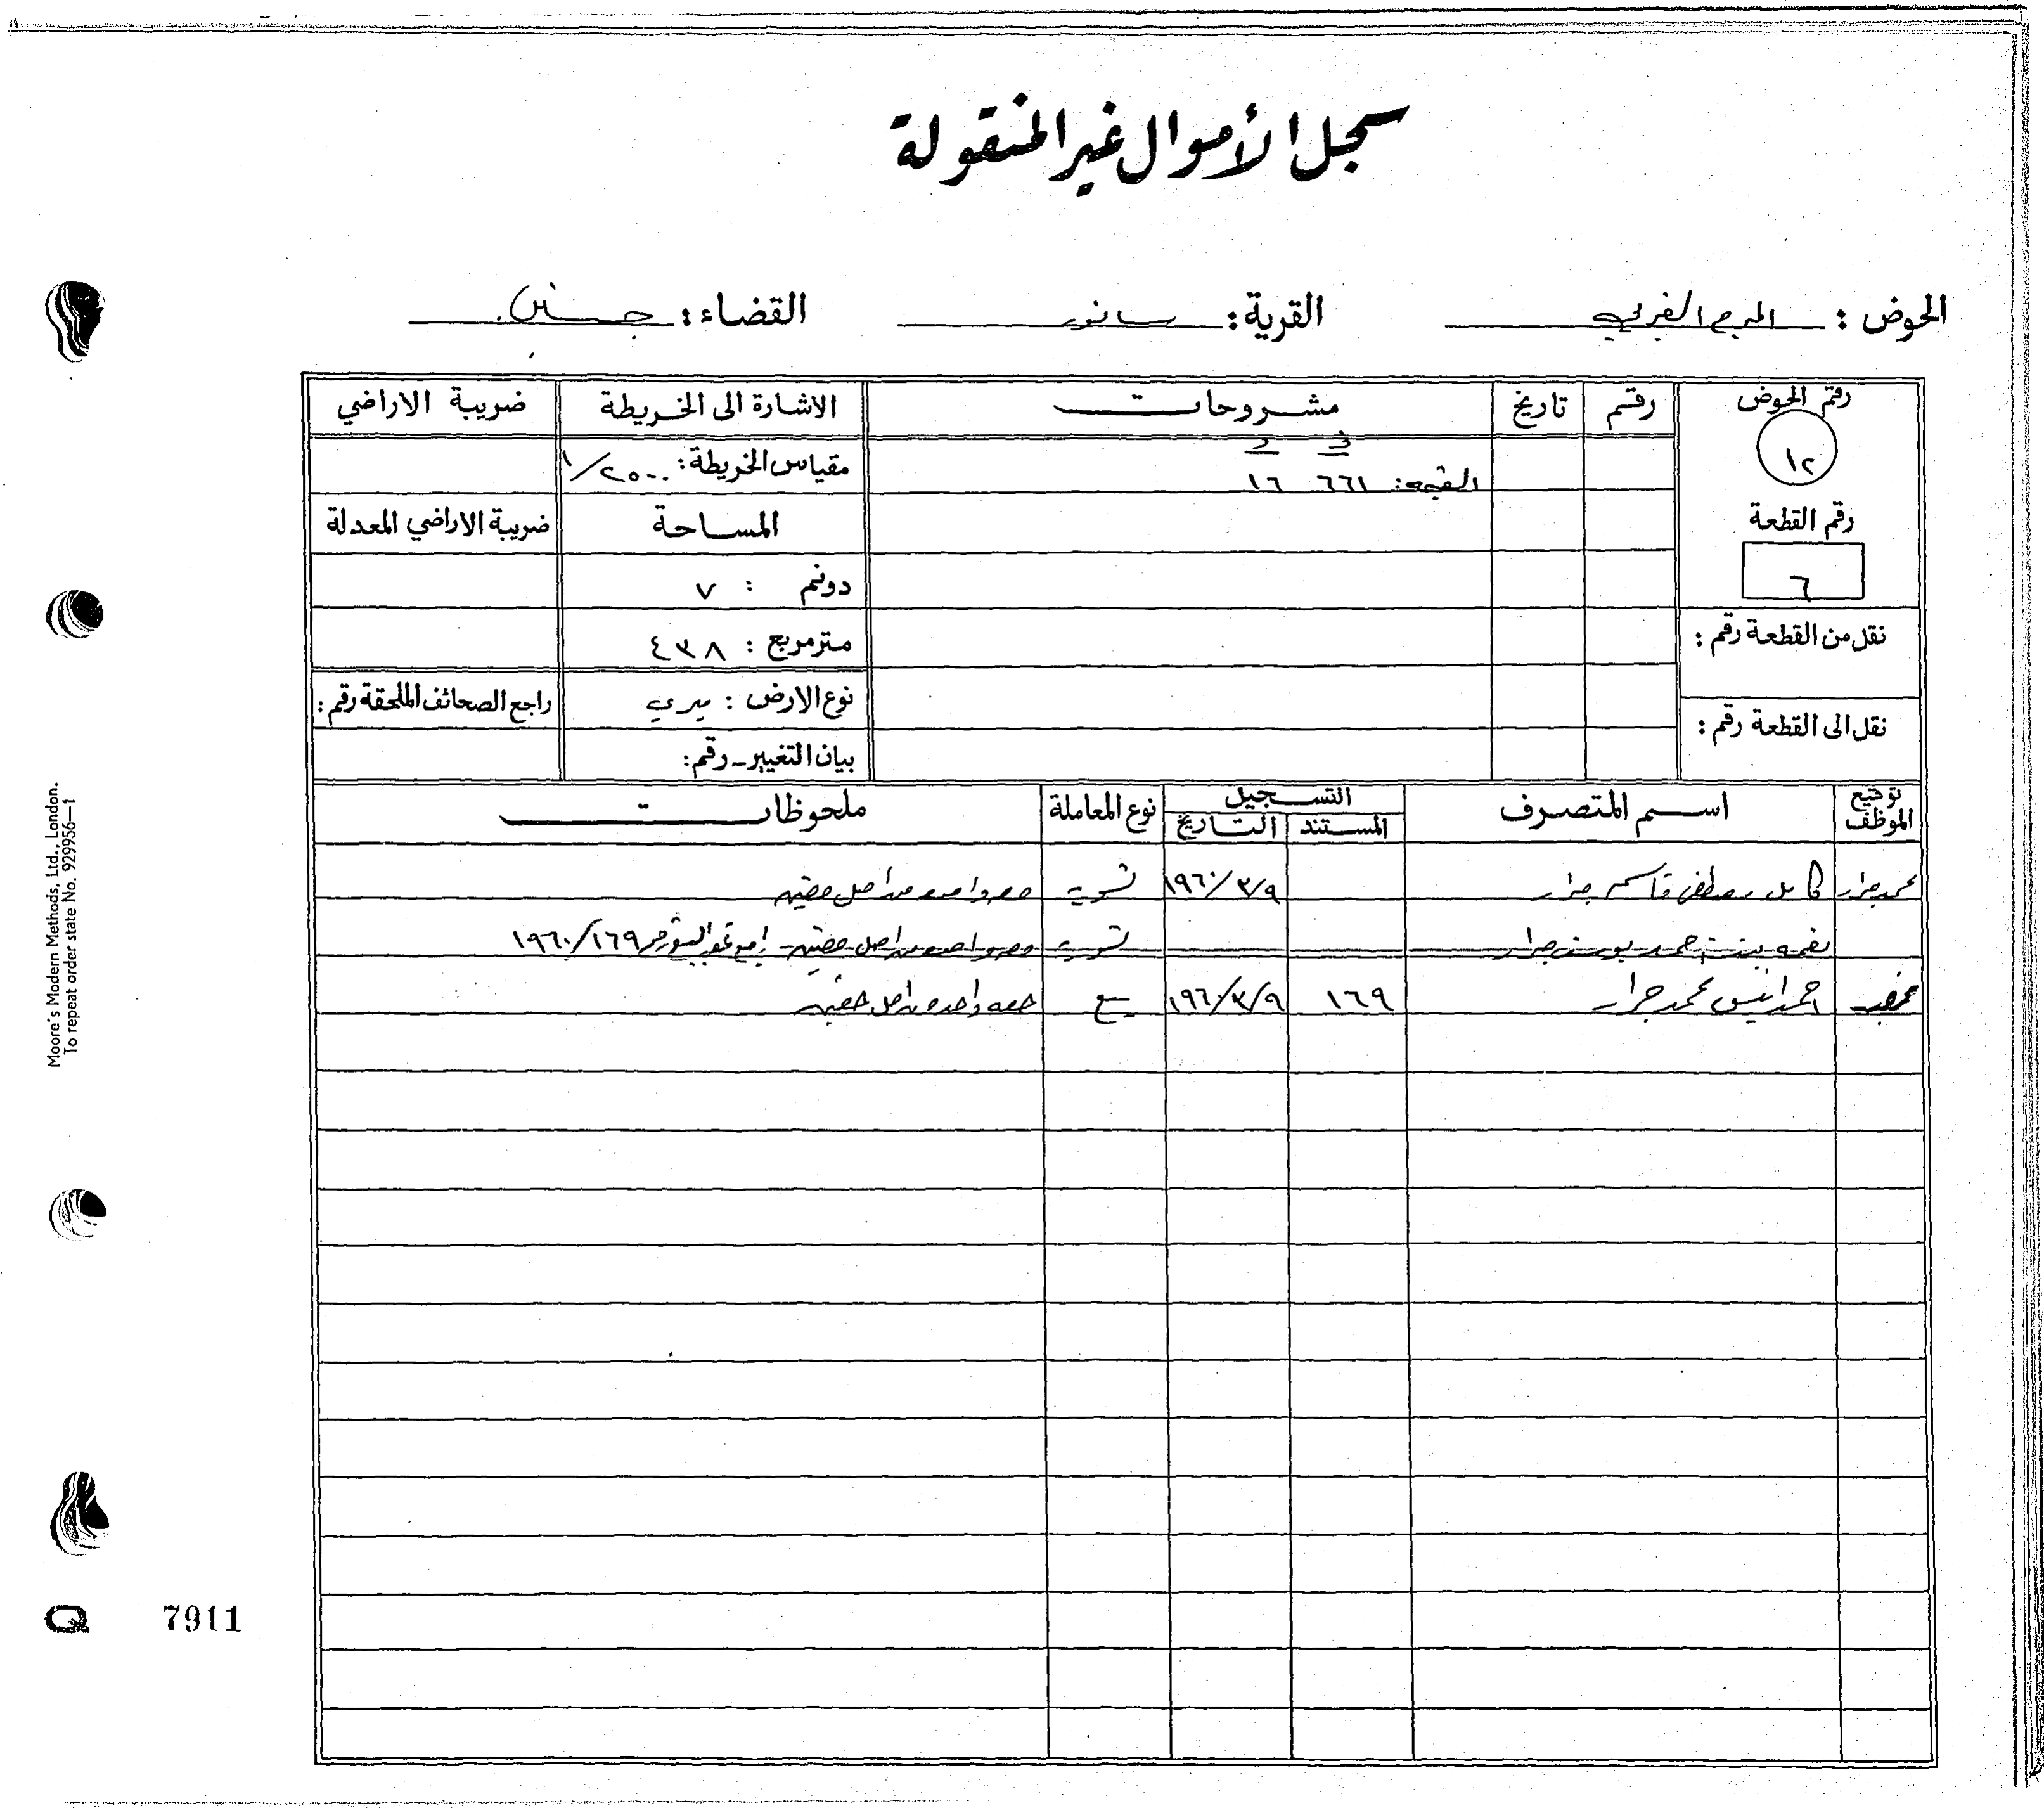 سجل الأموال غير المنقولة
الحوض : المرج الغربي القرية : سانور القضاء : جنين
رقم الحوض رقم تاريخ مشروحات الاشارة الى الخريطة ضريبة الاراضي
١٢
القيمة : ٦٦١ ١٦ مقياس الخريطة : ١/٢٥٠٠
رقم القطعة المساحة ضريبة الاراضي المعدلة
٦ دونم : ٧
نقل من القطعة رقم : متر مربع : ٤٣٨
نوع الارض : ميري راجع الصحائف الملحقة رقم :
نقل الى القطعة رقم :
بيان التغيير - رقم :
توقيع الموظف اسم المتصرف التسجيل نوع المعاملة ملحوظات
المستند التاريخ
محمد جرار كامل مصطفى قاسم جرار ١٩٦٠/٣/٩ تسوية حصه واحده من اصل حصتين
نعمه بنت احمد يوسف جرار تسوية حصه واحده من اصل حصتين - راجع عقد البيع رقم ١٩٦٠/١٦٩
احمد انيس محمد جرار ١٦٩ ١٩٦٠/٣/٩ بيع حصه واحده من اصل حصتين
Moore's Modern Methods, Ltd., London.
To repeat order state No. 929956—1
Q 7911